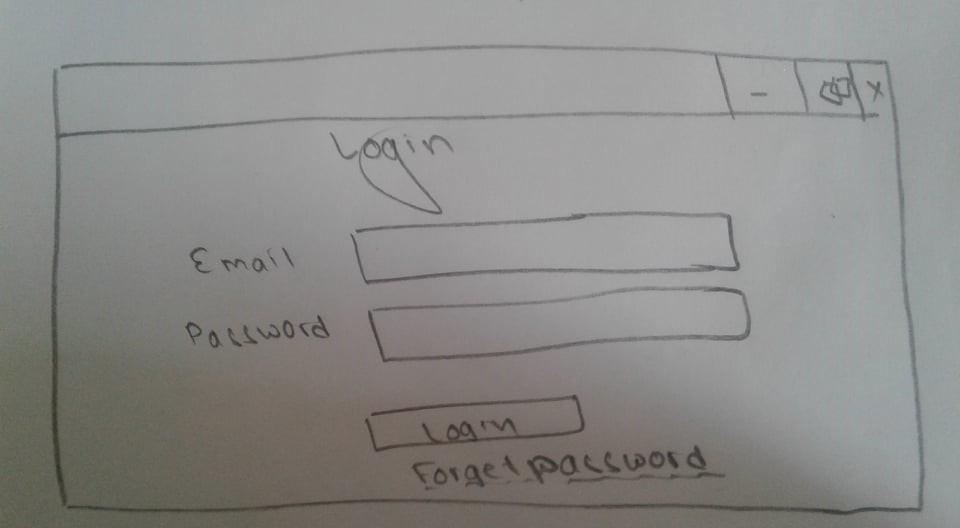 Login
Email
Password
Login
Forget password